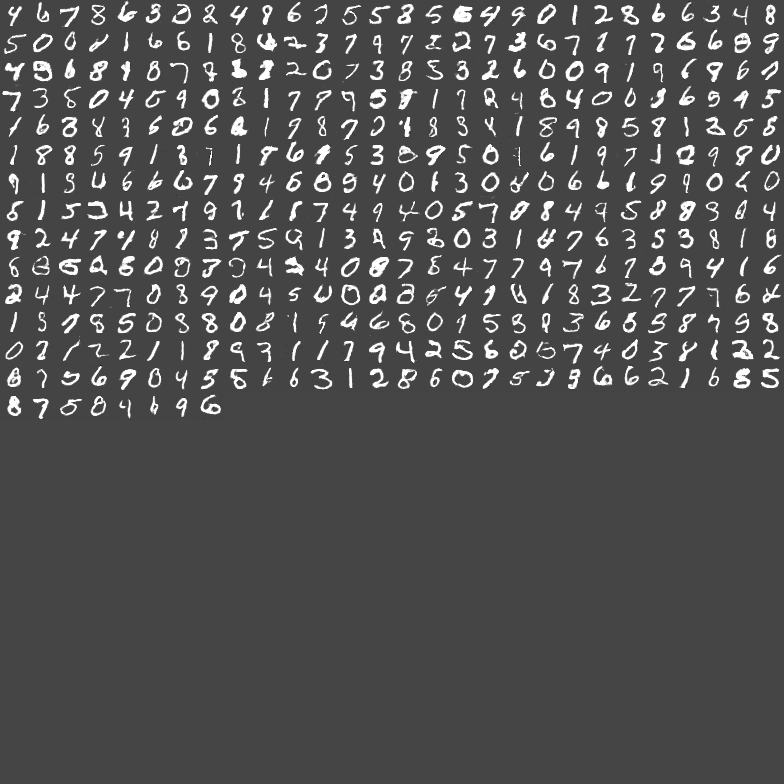 4 6 7 8 6 3 0 2 4 8 6 2 5 5 8 5 6 4 9 0 1 2 8 6 6 3 4 8
5 0 0 4 1 6 6 1 8 4 2 3 7 9 7 2 2 7 3 6 7 7 7 7 6 6 8 9
4 9 6 8 9 8 7 8 1 8 2 0 7 3 8 5 3 2 6 0 0 9 1 9 6 8 6 7
7 3 8 0 4 0 9 0 8 1 7 7 9 5 8 1 9 2 4 8 4 0 0 3 6 5 4 5
1 6 3 8 3 6 0 6 2 1 9 8 7 0 1 8 3 4 1 8 9 8 5 8 1 2 5 8
1 8 8 5 9 1 3 7 1 9 6 9 5 3 0 9 5 0 9 6 1 9 7 1 2 9 8 0
9 1 3 4 6 6 6 7 9 4 6 8 9 4 0 1 3 0 8 0 6 6 1 9 9 0 6 0
8 1 5 5 4 2 7 9 1 1 8 7 4 9 4 0 5 7 8 8 4 9 5 8 8 9 8 4
9 2 4 7 9 8 7 3 7 5 9 1 3 9 9 2 0 3 1 4 7 6 3 5 3 8 1 8
6 8 5 2 8 0 8 3 0 4 2 4 0 8 7 8 4 7 7 9 7 6 7 8 9 4 1 6
2 4 4 7 7 0 8 9 0 4 5 4 0 8 8 5 4 9 4 1 8 3 2 7 7 7 6 6
1 5 7 8 5 0 8 8 0 8 1 5 4 6 8 0 9 5 8 9 3 6 8 3 8 7 9 8
0 7 1 2 2 1 1 8 9 3 1 1 7 9 4 2 5 6 2 5 7 4 0 3 8 1 2 2
8 7 5 6 9 8 4 5 8 6 6 3 1 2 8 6 0 7 5 3 3 6 6 2 1 6 8 5
8 7 5 8 4 6 9 6